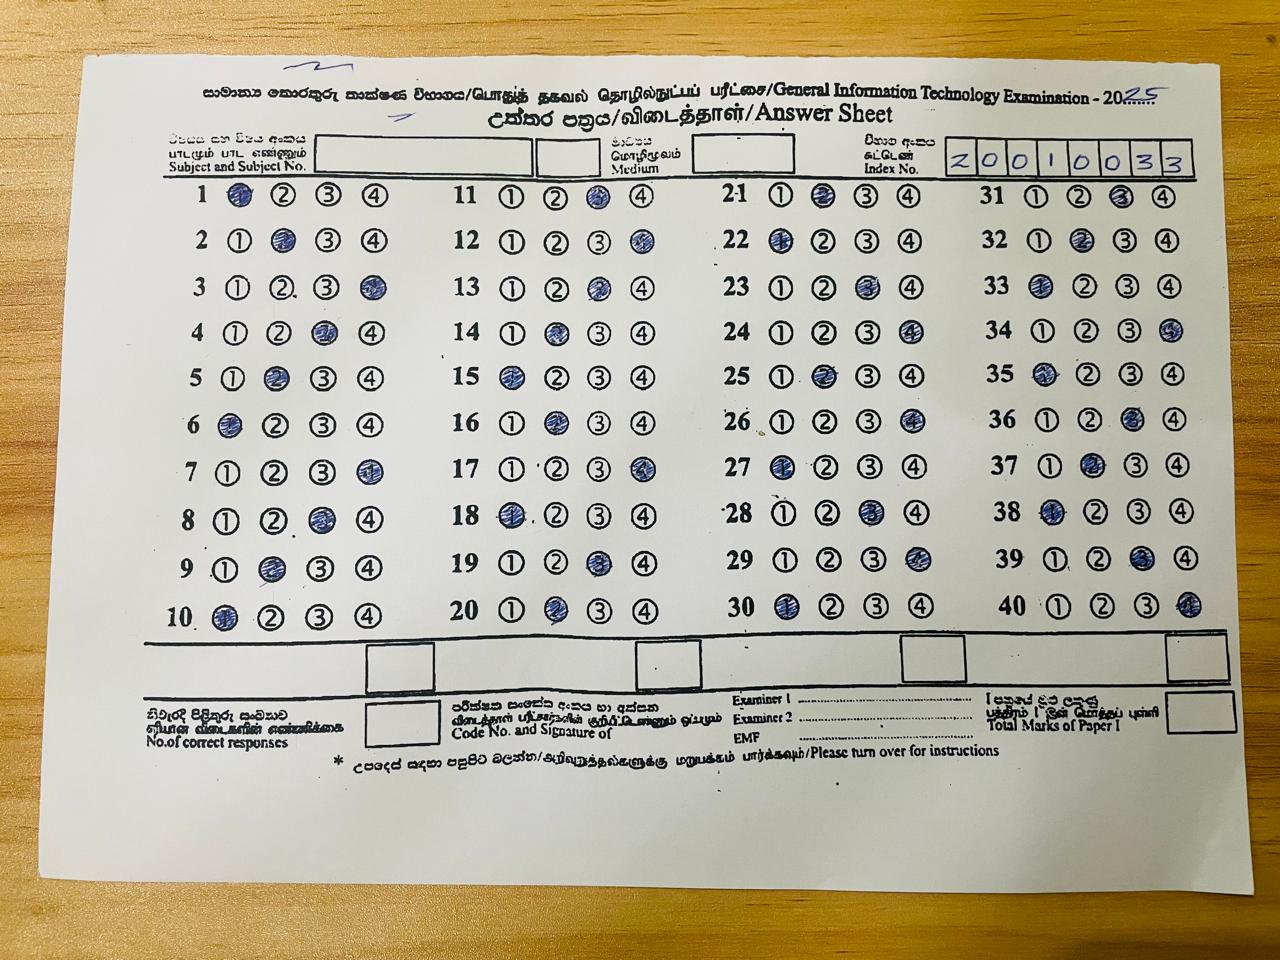 සාමාන්‍ය තොරතුරු තාක්ෂණ විභාගය/பொதுத் தகவல் தொழில்நுட்பப் பரீட்சை/General Information Technology Examination - 2025
උත්තර පත්‍රය/விடைத்தாள்/Answer Sheet
විෂයය සහ විෂය අංකය
பாடமும் பாட எண்ணும்
Subject and Subject No.
මාධ්‍යය
மொழிமூலம்
Medium
විභාග අංකය
சுட்டெண்
Index No.
2 0 0 1 0 0 3 3
1 ① ② ③ ④ 11 ① ② ③ ④ 21 ① ② ③ ④ 31 ① ② ③ ④
2 ① ② ③ ④ 12 ① ② ③ ④ 22 ① ② ③ ④ 32 ① ② ③ ④
3 ① ② ③ ④ 13 ① ② ③ ④ 23 ① ② ③ ④ 33 ① ② ③ ④
4 ① ② ③ ④ 14 ① ② ③ ④ 24 ① ② ③ ④ 34 ① ② ③ ④
5 ① ② ③ ④ 15 ① ② ③ ④ 25 ① ② ③ ④ 35 ① ② ③ ④
6 ① ② ③ ④ 16 ① ② ③ ④ 26 ① ② ③ ④ 36 ① ② ③ ④
7 ① ② ③ ④ 17 ① ② ③ ④ 27 ① ② ③ ④ 37 ① ② ③ ④
8 ① ② ③ ④ 18 ① ② ③ ④ 28 ① ② ③ ④ 38 ① ② ③ ④
9 ① ② ③ ④ 19 ① ② ③ ④ 29 ① ② ③ ④ 39 ① ② ③ ④
10 ① ② ③ ④ 20 ① ② ③ ④ 30 ① ② ③ ④ 40 ① ② ③ ④
නිවැරදි පිළිතුරු සංඛ්‍යාව
சரியான விடைகளின் எண்ணிக்கை
No.of correct responses
පරීක්ෂක සංකේත අංකය හා අත්සන
விடைத்தாள் பரீட்சகர்களின் குறியீட்டெண்ணும் ஒப்பமும்
Code No. and Signature of
Examiner 1
Examiner 2
EMF
I පත්‍රයේ මුළු ලකුණු
பத்திரம் I இன் மொத்தப் புள்ளி
Total Marks of Paper I
* උපදෙස් සඳහා පසුපිට බලන්න/அறிவுறுத்தல்களுக்கு மறுபக்கம் பார்க்கவும்/Please turn over for instructions